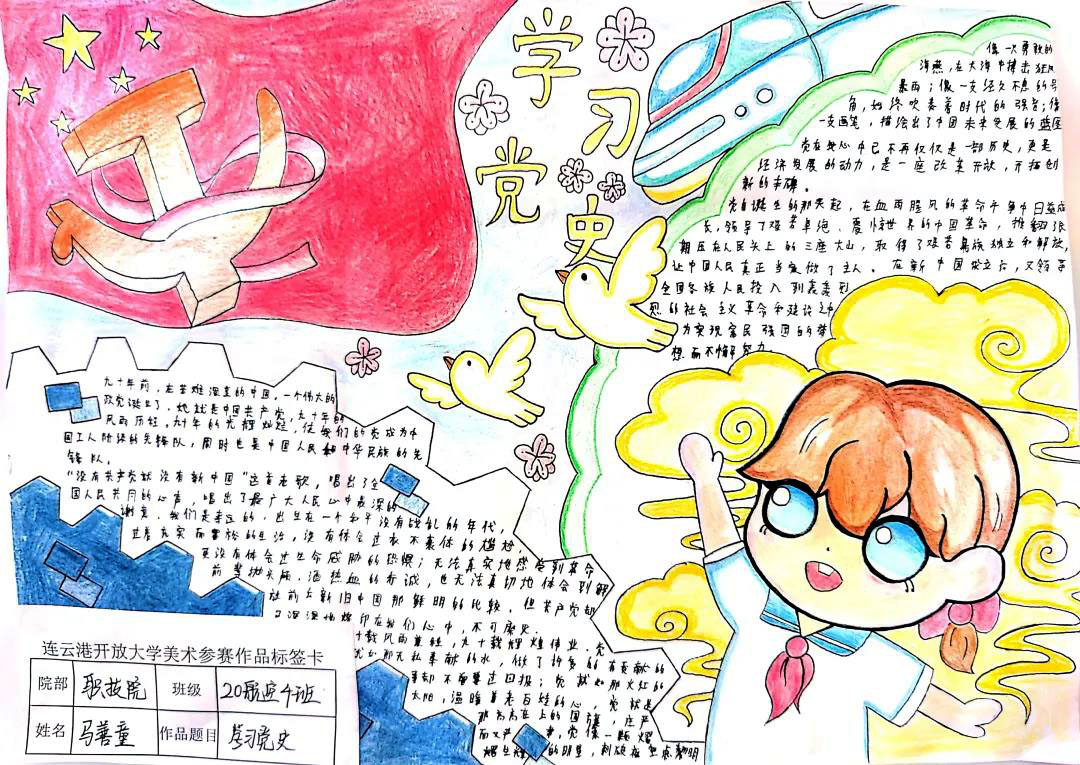 学习
党史
像一只勇敢的
海燕，在大海中搏击狂风
暴雨；像一支经久不息的号
角，始终吹奏着时代的强音；像
一支画笔，描绘出了中国未来发展的蓝图
党在我心中已不再仅仅是一部历史，更是
经济发展的动力，是一座改革开放，开拓创
新的丰碑。
党自诞生的那天起，在血雨腥风的革命斗争中日益成
长，领导了艰苦卓绝、震惊世界的中国革命，推翻
压在人民头上的三座大山，取得了民族独立和解放，
让中国人民真正当家做了主人。在新中国成立后，又领导
全国各族人民投入到轰轰烈
烈的社会主义革命和建设之中
为实现富民强国的梦
想而不懈努力
九十年前，在苦难深重的中国，一个伟大的
政党诞生了，她就是中国共产党，九十年的
风雨历程，九十年的光辉灿烂，使我们的党成为中
国工人阶级的先锋队，同时也是中国人民和中华民族的先
锋队。
“没有共产党就没有新中国”这首老歌，唱出了全
国人民共同的心声，唱出了最广大人民心中最深的
谢意。我们是幸运的，出生在一个和平没有战乱的年代，
过着充实而富裕的生活，没有体会过衣不裹体的尴尬，
更没有体会过生命威胁的恐惧；无法真实地感受到革命
前辈抛头颅、洒热血的赤诚，也无法真切地体会到解
放前后新旧中国那鲜明的比较，但共产党却
深深地烙印在我们心中，不可磨灭。
十载风雨兼程，九十载辉煌伟业，党
就如那无私奉献的水，做了许多的有贡献的
事却不奢望过回报；党就如那火红的
太阳，温暖着老百姓的心，党就是
那高高在上的国旗，庄严
而又，党像一颗耀
的明星，
连云港开放大学美术参赛作品标签卡
院部 职技院 班级 20航空4班
姓名 马善童 作品题目 学习党史